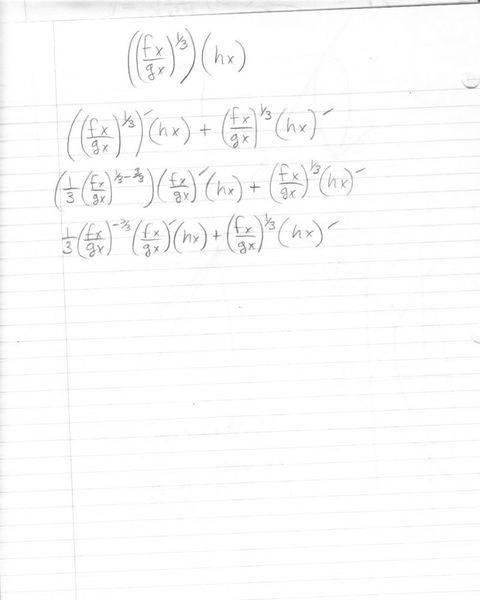 ((fx/gx)^1/3)(hx)
((fx/gx)^1/3)′(hx) + (fx/gx)^1/3(hx)′
(1/3(fx/gx)^1/3-3/3)(fx/gx)′(hx) + (fx/gx)^1/3(hx)′
1/3(fx/gx)^-2/3(fx/gx)′(hx) + (fx/gx)^1/3(hx)′